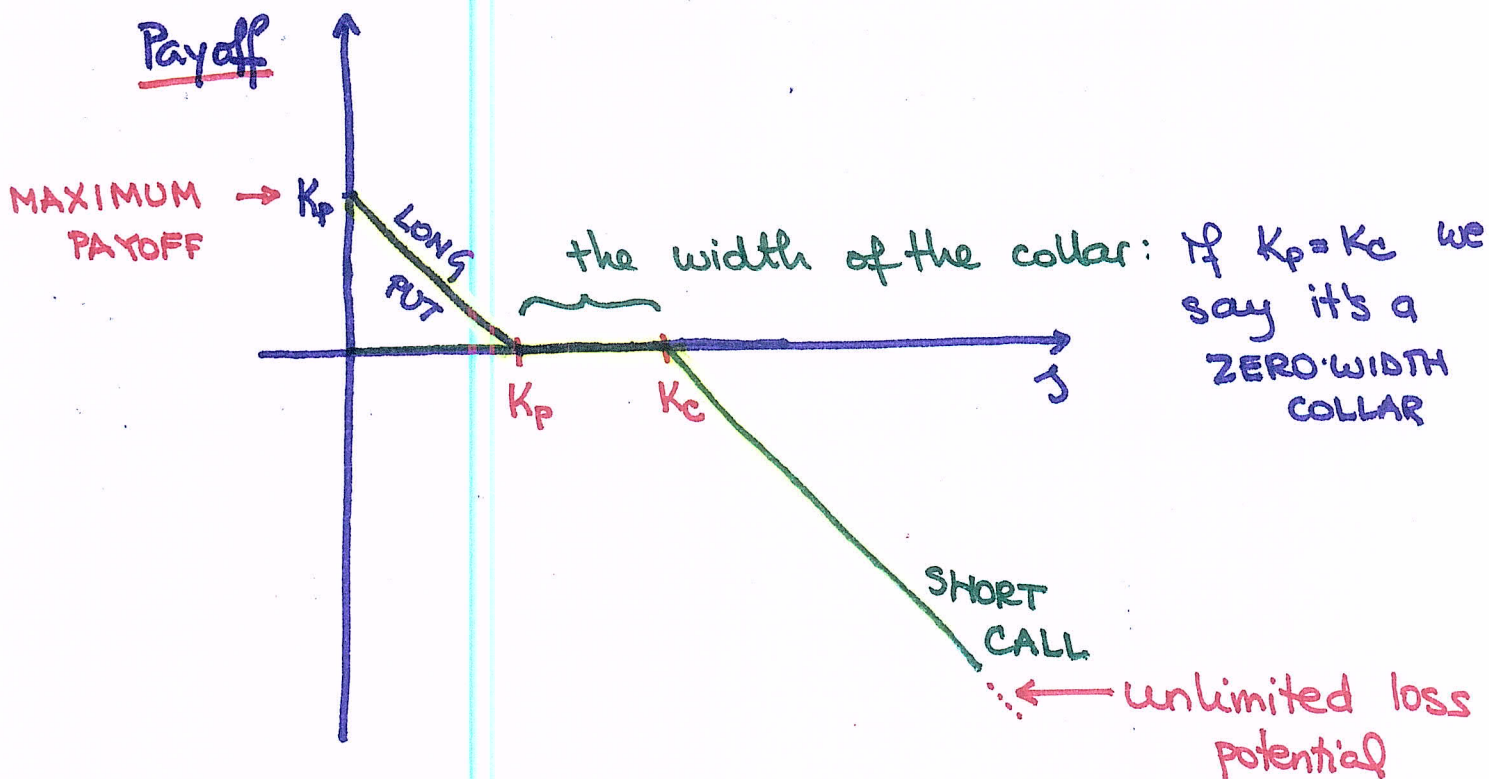 Payoff
MAXIMUM → Kp
PAYOFF
LONG
PUT
the width of the collar: if Kp = Kc we
say it's a
ZERO-WIDTH
COLLAR
Kp
Kc
SHORT
CALL
← unlimited loss
potential